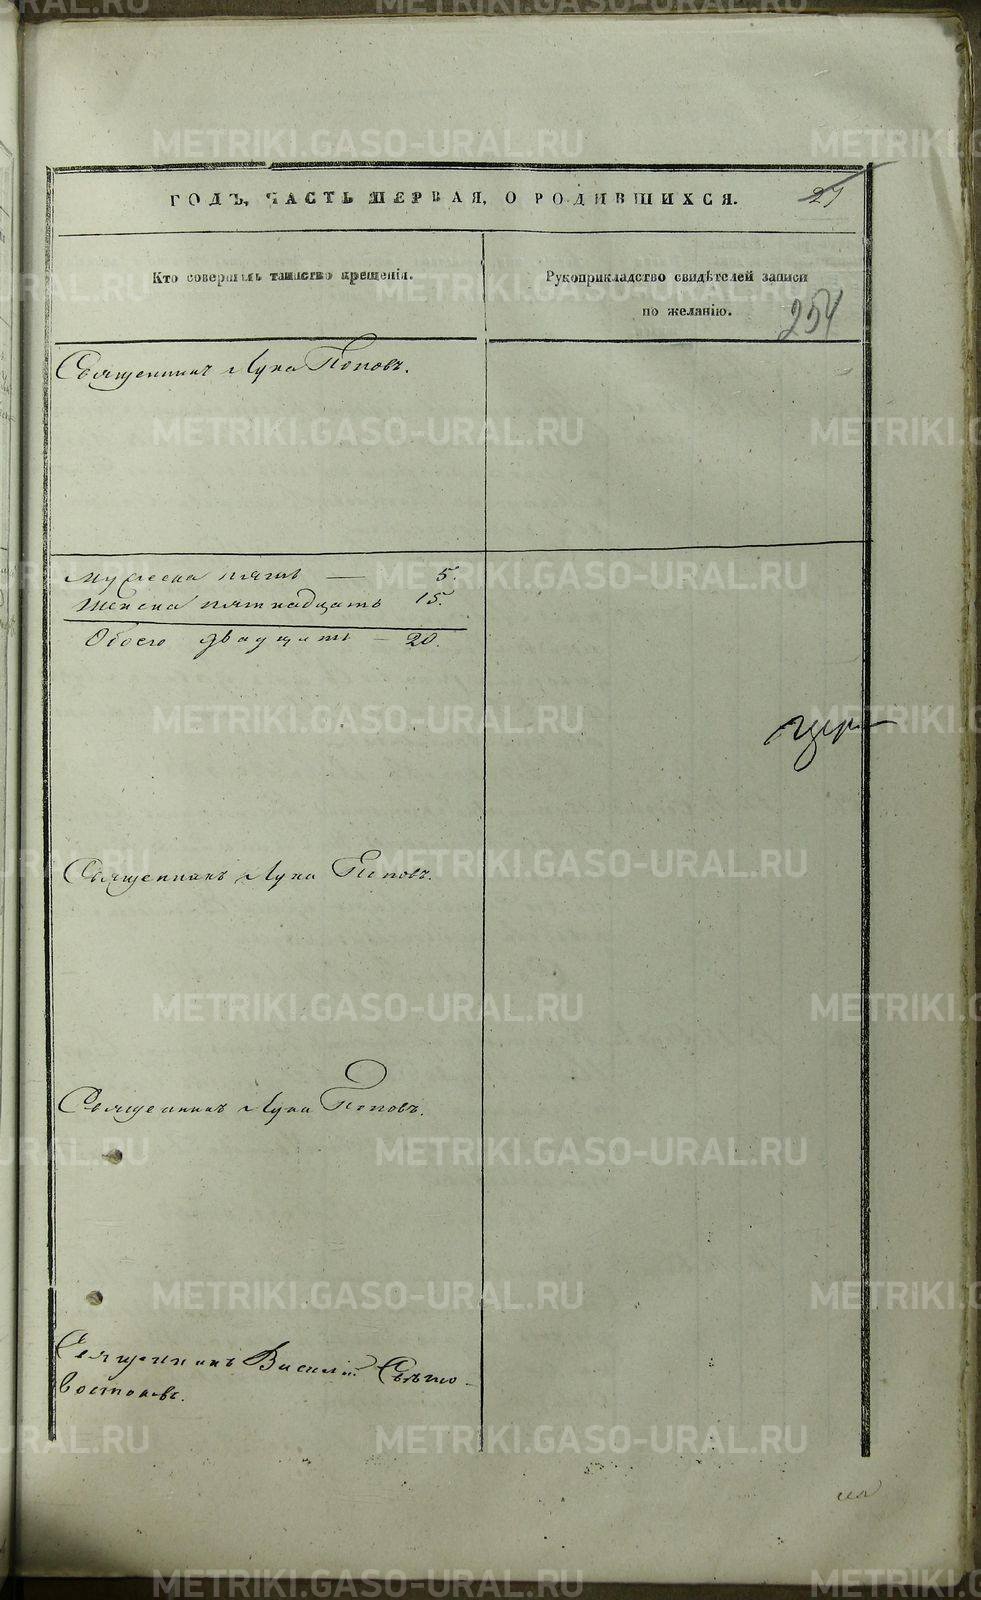 ГОДЪ, ЧАСТЬ ПЕРВАЯ, О РОДИВШИХСЯ.
Кто совершалъ таинство крещенія.
Рукоприкладство свидѣтелей записи
по желанію.
254
Священникъ Лука Поповъ.
Мужеска пять — 5.
Женска пятнадцать 15.
Обоего двадцать — 20.
Священникъ Лука Поповъ.
Священникъ Лука Поповъ.
Священникъ Василій Свѣто-
востоковъ.
METRIKI.GASO-URAL.RU